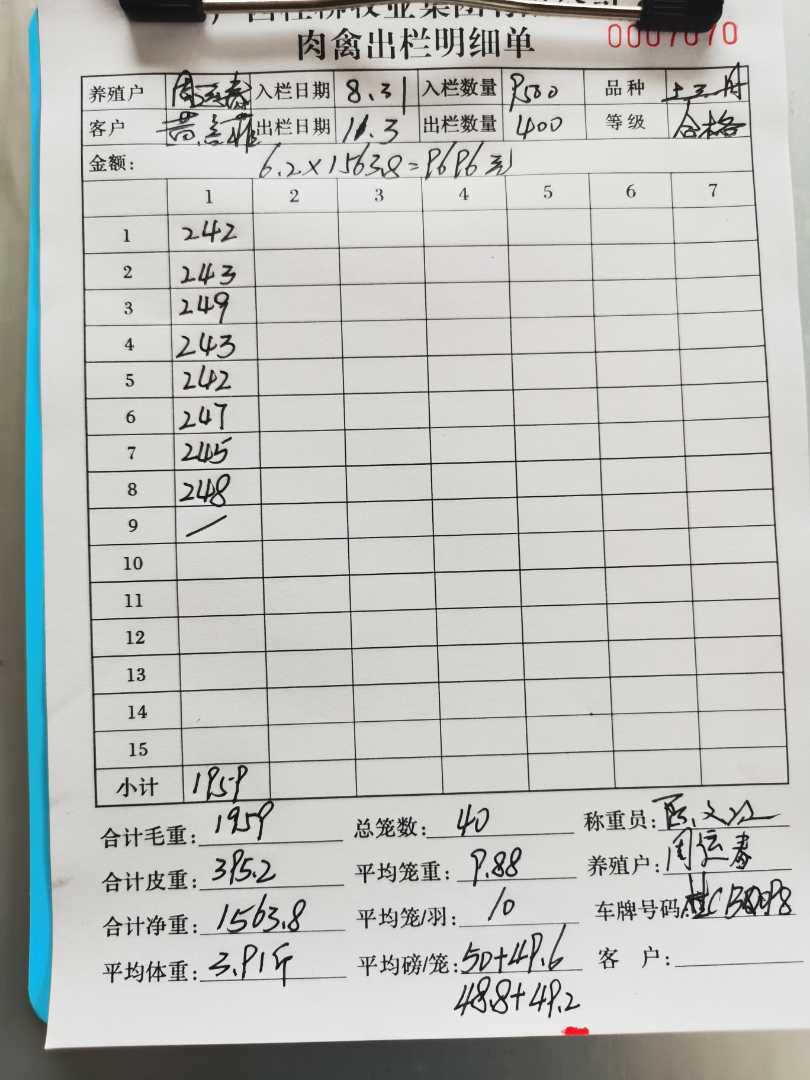 广西桂柳牧业集团有限公司
肉禽出栏明细单 0007070
养殖户 周运春 入栏日期 8.31 入栏数量 9500 品种
客户 出栏日期 11.3 出栏数量 400 等级 合格
金额: 6.2×1563.8=9696元
1 2 3 4 5 6 7
1 242
2 243
3 249
4 243
5 242
6 247
7 245
8 248
9 /
10
11
12
13
14
15
小计 1959
合计毛重: 1959 总笼数: 40 称重员:
合计皮重: 395.2 平均笼重: 9.88 养殖户: 周运春
合计净重: 1563.8 平均笼/羽: 10 车牌号码:
平均体重: 3.91斤 平均磅/笼: 50+49.6 客 户:
48.8+49.2